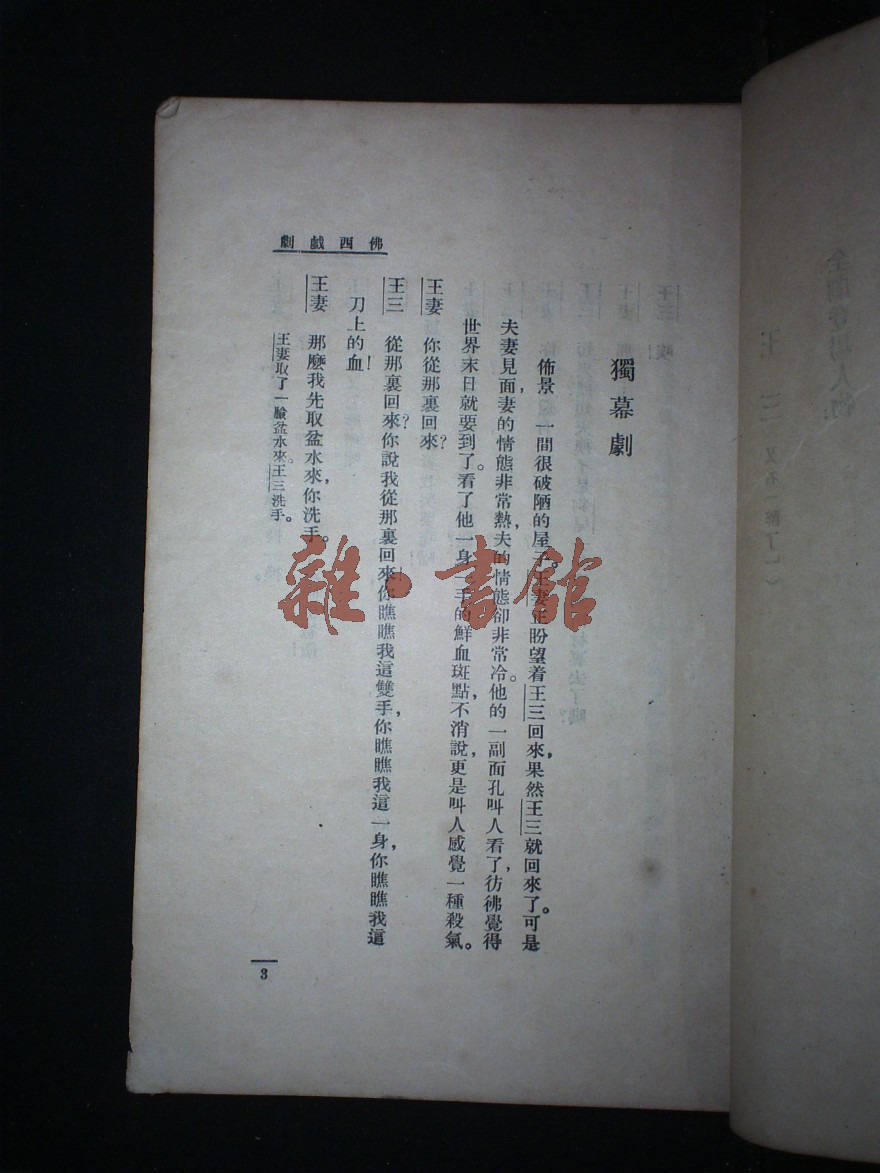 佛西戲劇
獨幕劇
佈景 一間很破陋的屋子。王妻正盼望着王三回來，果然王三就回來了。可是
夫妻見面，妻的情態非常熱，夫的情態卻非常冷。他的一副面孔叫人看了，彷彿覺得
世界末日就要到了。看了他一身一手的鮮血斑點，不消說，更是叫人感覺一種殺氣。
王妻 你從那裏回來？
王三 從那裏回來？你說我從那裏回來！你瞧瞧我這雙手，你瞧瞧我這一身，你瞧瞧我這
刀上的血！
王妻 那麼我先取盆水來，你洗手。
王妻取了一臉盆水來。王三洗手。
3
雜·書館